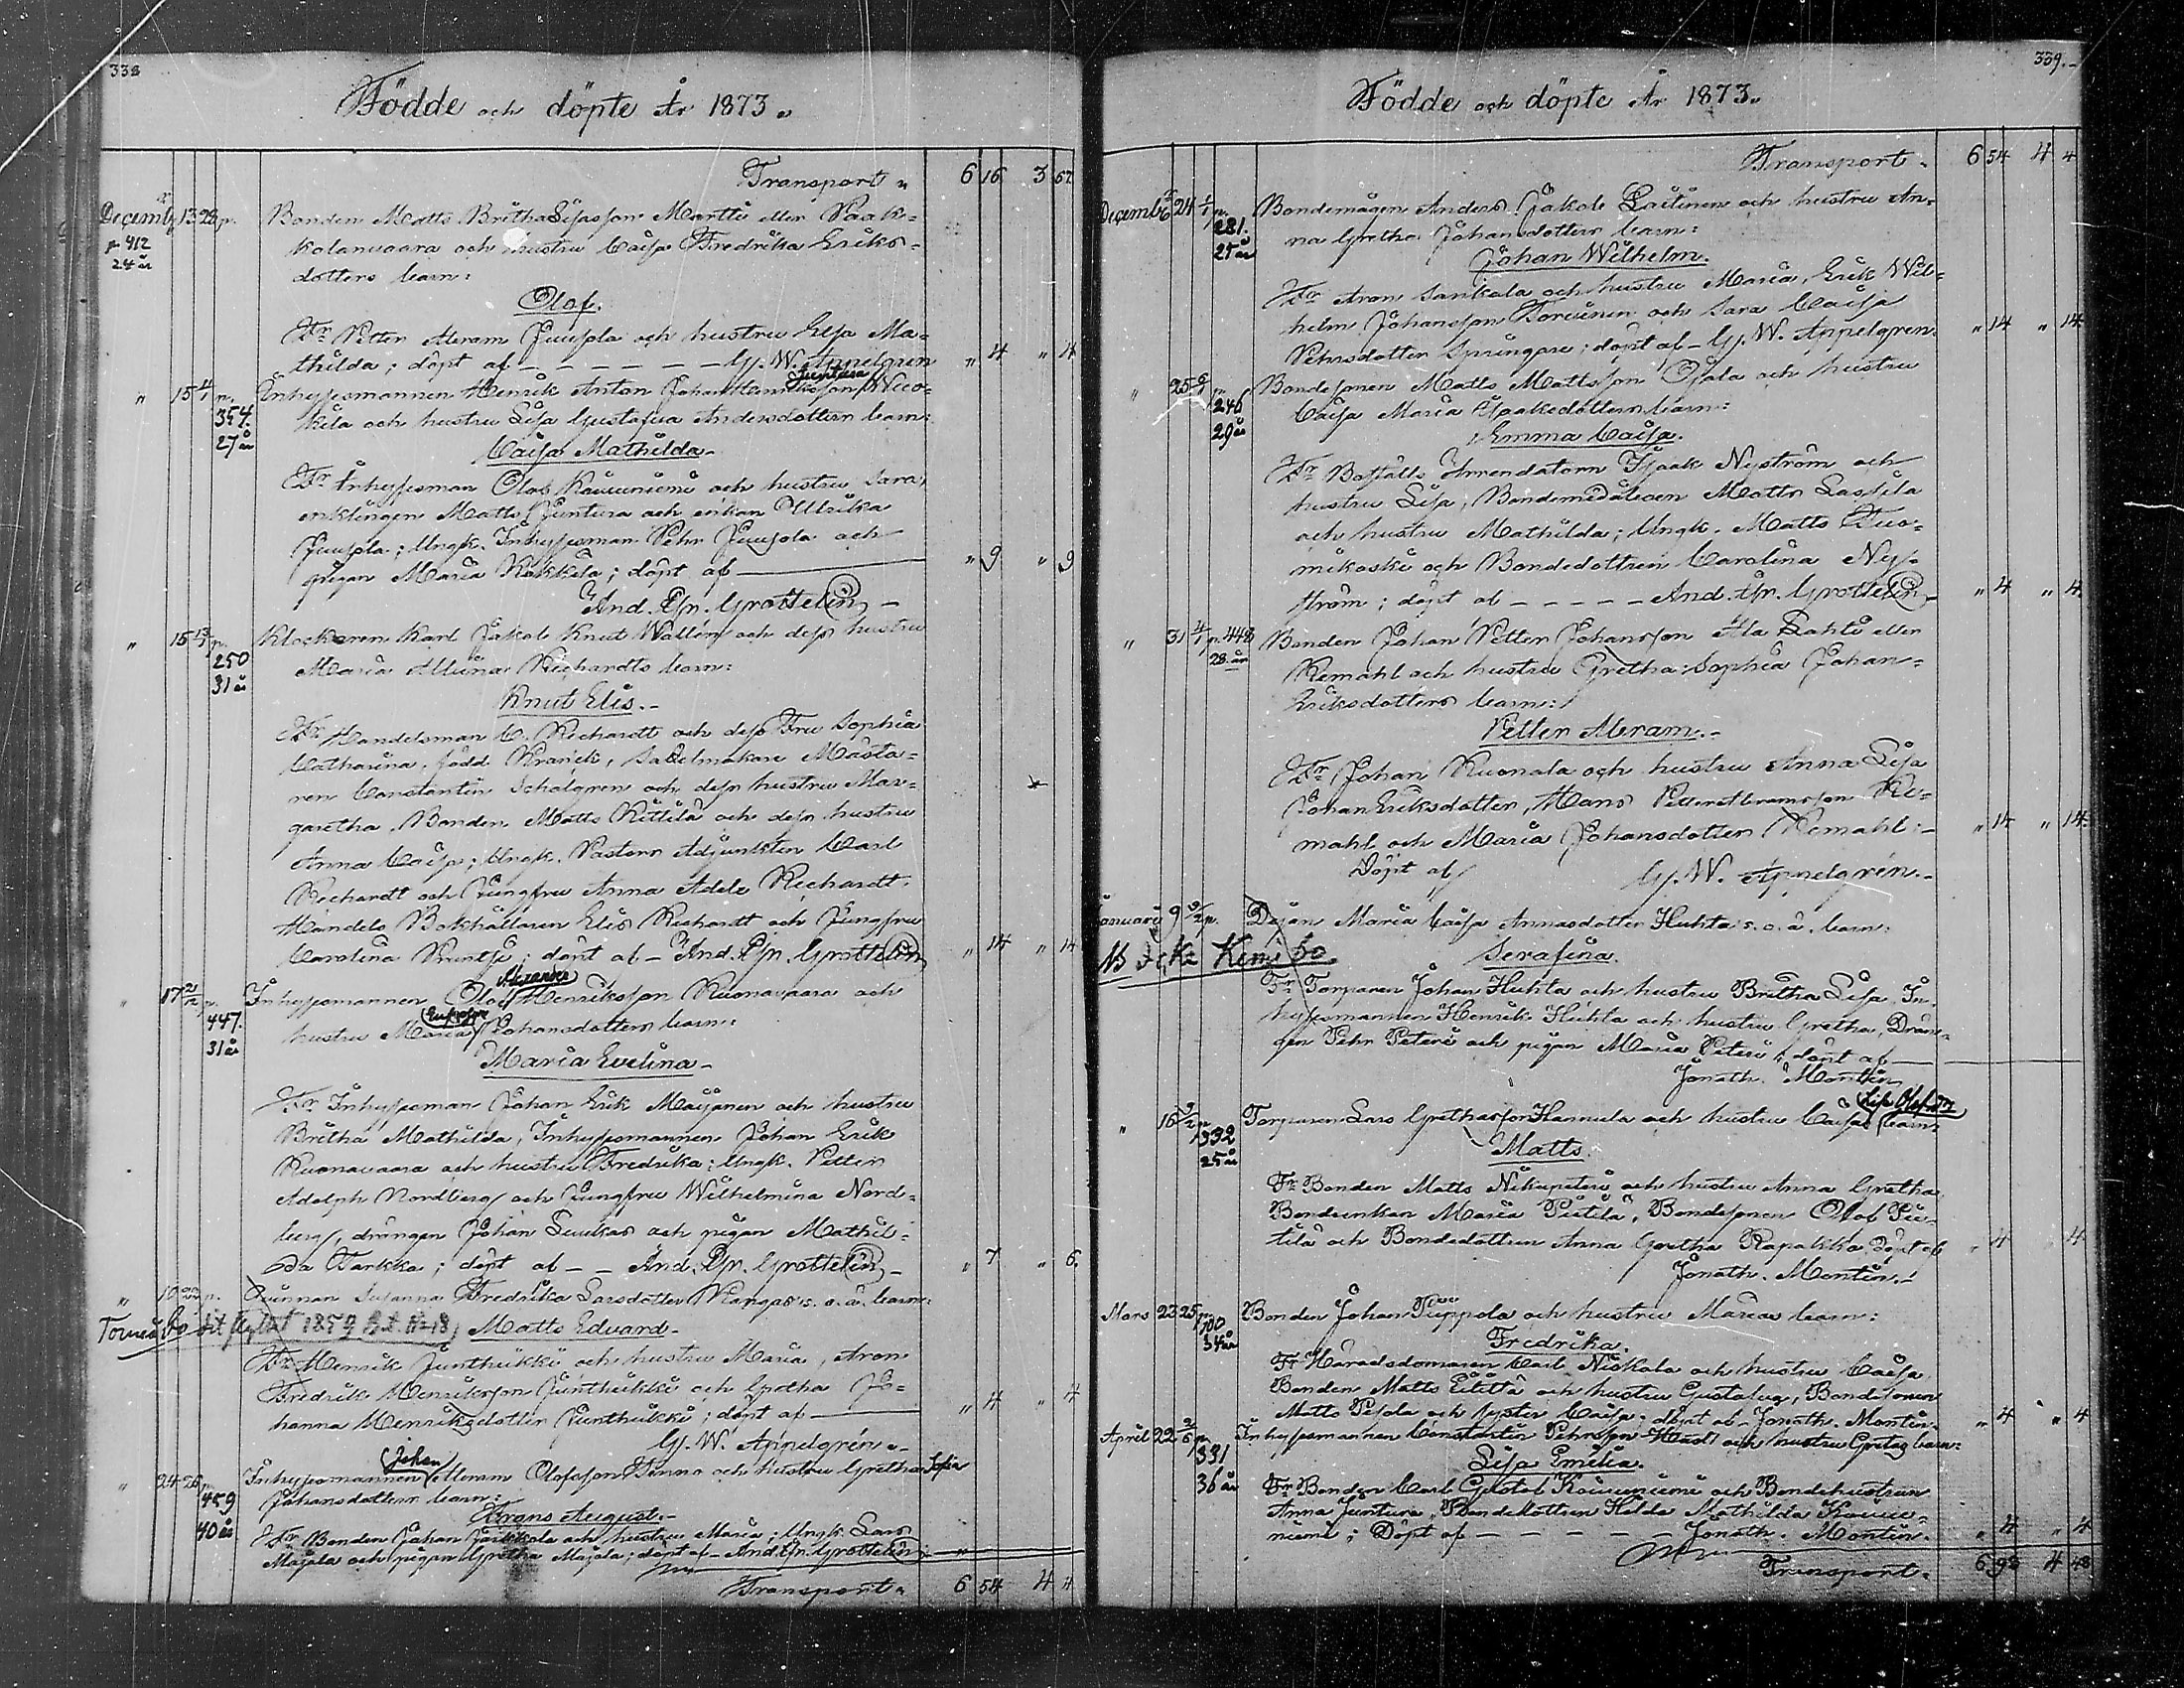 338
Födde och döpte År 1873.
Transport 6 16 3 67
Decemb. 13 28 p. Bonden Matts Britha Lisasson Martti eller Paak-
p 412 kolanvaara och hustru Caisa Fredrika Eriks-
24 år dotters barn:
Olof.
Fr Petter Abram Juusola och hustru Elsa Ma-
thilda; döpt af – – – – – Gj. W. Appelgren " 4 " 4
" 15 4/1 p. Inhysesmannen Henrik Anton Johan Henriksson Juntura
354. kilä och hustru Lisa Gustafva Andersdotters barn:
27 år Caisa Mathilda.
Fr Inhysesman Olof Kauniemi och hustru Sara,
enklingen Matts Juntura och enkan Ulrika
Juusola; Ungk. Inhysesman Pehr Juusola och
pigan Maria Kokkila; döpt af " 9 " 9
And. Gr. Grottelin –
" 15 p. Klockaren Karl Jakob Knut Wallén och dess hustru
250 Maria Richardts barn:
31 år Knut Elis.–
Fr Handelsman C. Richardt och dess Fru Sophia
Catharina, född Kranck, Sadelmakare Mästa-
ren Constantin Schalgren och dess hustru Mar-
garetha, Bonden Matts Kittilä och dess hustru
Anna Caisa; Ungk. Pastors Adjunkten Carl
Richardt och Jungfru Anna Adele Richardt.
Handels Bokhållaren Elis Richardt och Jungfru
Carolina; döpt af – And. Gr. Grottelin " 14 " 14
" 17 2/2 p. Inhysesmannen Olof Alexander Henriksson Kuonavaara och
447. hustru Maria Eufrosyne Johansdotters barn:
31 år Maria Evelina –
Fr Inhysesman Johan Erik Maijanen och hustru
Britha Mathilda, Inhysesmannen Johan Erik
Kuonavaara och hustru Fredrika; Ungk. Petter
Adolph Nordberg och Jungfru Wilhelmina Nord-
berg, drängen Johan Luukas och pigan Mathil-
da Tarkka; döpt af – – And. Gr. Grottelin – " 7 " 6.
" p. Qvinnan Susanna Fredrika Larsdotter Kangas s. o. ä. barn:
Torneå bo dit flyttat 1859 Matts Eduard –
Fr Henrik Junthikki och hustru Maria, Aron
Fredrik Henriksson Junthikki och Gretha Jo-
hanna Henriksdotter Junthikki; döpt af " 4 " 4
Gj. W. Appelgren.–
" 24 26 p. Inhysesmannen Johan Abram Olofsson Hanno och hustru Gretha Sofia
459 Johansdotters barn:
40 år Frans August.–
Fr Bonden Johan Jaikkola och hustru Maria; Ungk. Lars
Majala och pigan Gretha Majala; döpt af – And. Gr. Grottelin "
Transport. 6 54 4 4
339.–
Födde och döpte År 1873.
Transport. 6 54 4 4
Decemb. 24 1/1 p. Bondemågen Anders Jakob Laitinen och hustru An-
281. na Gretha Johansdotters barn:
25 år Johan Wilhelm.
Fr Aron Sankala och hustru Maria, Erik Wil-
helm Johansson Torvinen och Sara Caisa
Pehrsdotter Springare; döpt af – Gj. W. Appelgren. " 14 " 14
" 25 6/1 p. Bondesonen Matts Mattsson Ojala och hustru
246 Caisa Maria Isaksdotters barn:
29 år Emma Caisa.
Fr Boställs Arrendatorn Isaak Nyström och
hustru Lisa; Bondemedålegen Matts Lassila
och hustru Mathilda; Ungk. Matts Tuo-
mikoski och Bondedottren Carolina Ny-
ström; döpt af – – – – – And. Gr. Grottelin " 4 " 4.
" 31 4/1 p. 448 Bonden Johan Petter Johansson Ala Lahti eller
28. år Remahl och hustru Gretha Sophia Johan-
Eriksdotters barn:
Petter Abram.–
Fr Johan Kuonala och hustru Anna Lisa
Johan Eriksdotter, Hans Petter Abramsson Re-
mahl och Maria Johansdotter Remahl:– " 14 " 14
Döpt af Gj. W. Appelgren.–
Januari 9 2/2 p. Dejan Maria Caisa Annasdotter Huhta s. o. ä. barn:
NB Icke Kemi bo. Serafina.
Fr Torparen Johan Huhta och hustru Britha Lisa. In-
hysesmannen Henrik Huhta och hustru Gretha, Drän-
gen Pehr Peteri och pigan Maria Peteri; döpt af
Jonath. Montin
" 16 9/2 p Torparen Lars Grethasson Hannula och hustru Caisa Lisa Olofsdtr barn:
332 Matts.
25 år
Fr Bonden Matts Nikupeteri och hustru Anna Gretha
Bondeenkan Maria Piitilä, Bondesonen Olof Pii-
tilä och Bondedottren Anna Gretha Rapakka, döpt af " 4 " 4
Jonath. Montin.–
Mars 23 25 p Bonden Johan Piippola och hustru Marias barn:
100 Fredrika.
34 år Fr Häradsdomaren Carl Niskala och hustru Caisa
Bonden Matts Eilittä och hustru Gustava, Bondesonen
Matts Pesola och syster Caisa; döpt af – Jonath. Montin. " 4 " 4
April 22 2/6 p Inhysesmannen Constantin Pehrsson och hustru Gretas barn:
331 Lisa Emilia.
36 år Fr Bonden Carl Gustof Kauniemi och Bondehustrun
Anna Juntura, Bondedottren Hilda Mathilda Kauni-
niemi; Döpt af – – – – – – Jonath. Montin. " 4 " 4
Transport. 6 98 4 48